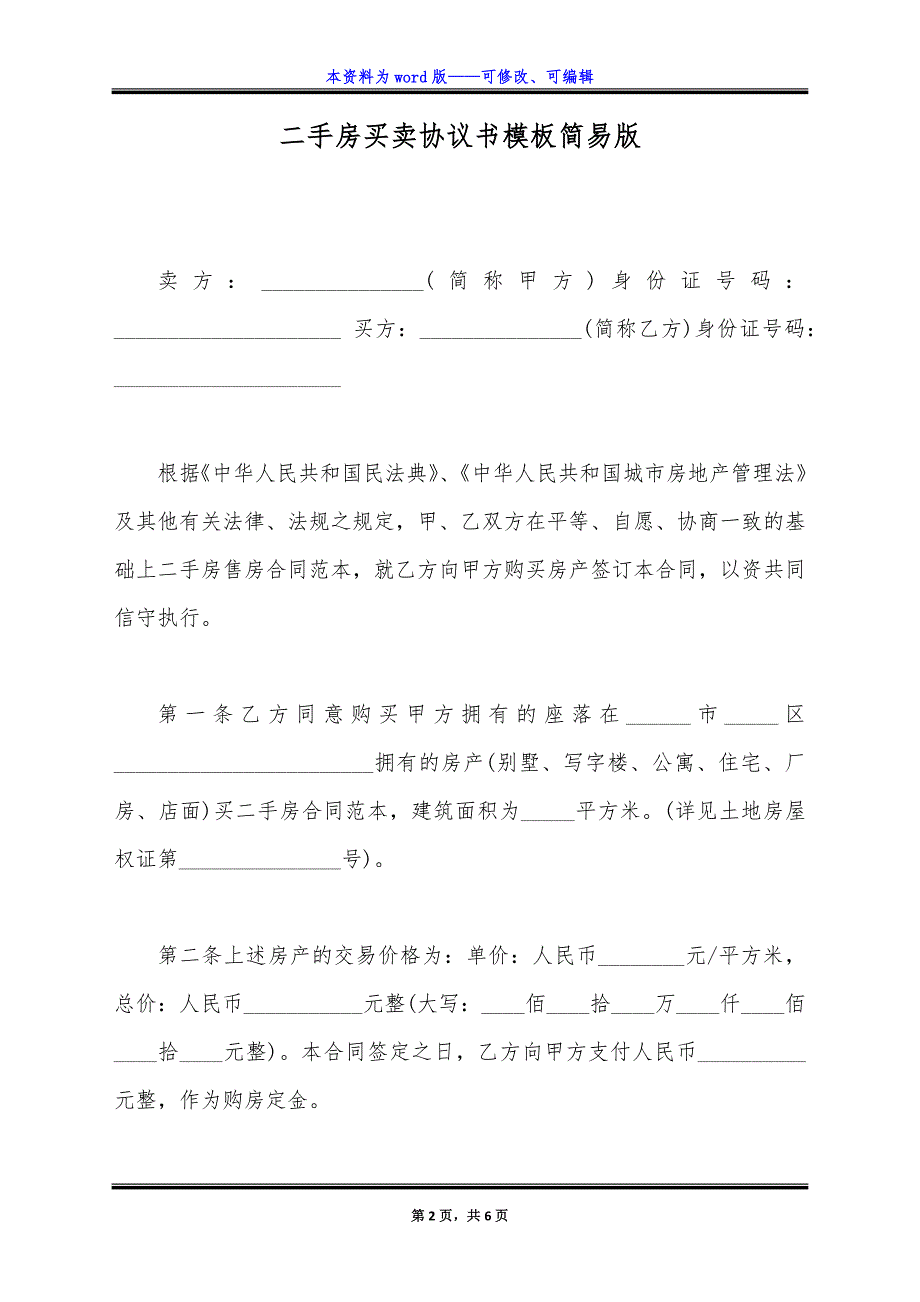 本资料为 word 版——可修改、可编辑
二手房买卖协议书模板简易版
卖方：_______________(简称甲方)身份证号码：
_____________________ 买方：_______________(简称乙方)身份证号码：
_____________________
根据《中华人民共和国民法典》、《中华人民共和国城市房地产管理法》
及其他有关法律、法规之规定，甲、乙双方在平等、自愿、协商一致的基
础上二手房售房合同范本，就乙方向甲方购买房产签订本合同，以资共同
信守执行。
第一条乙方同意购买甲方拥有的座落在______市_____区
________________________拥有的房产(别墅、写字楼、公寓、住宅、厂
房、店面)买二手房合同范本，建筑面积为_____平方米。(详见土地房屋
权证第_______________号)。
第二条上述房产的交易价格为：单价：人民币________元/平方米，
总价：人民币___________元整(大写：____佰____拾____万____仟____佰
____拾____元整)。本合同签定之日，乙方向甲方支付人民币__________
元整，作为购房定金。
第 2 页，共 6 页